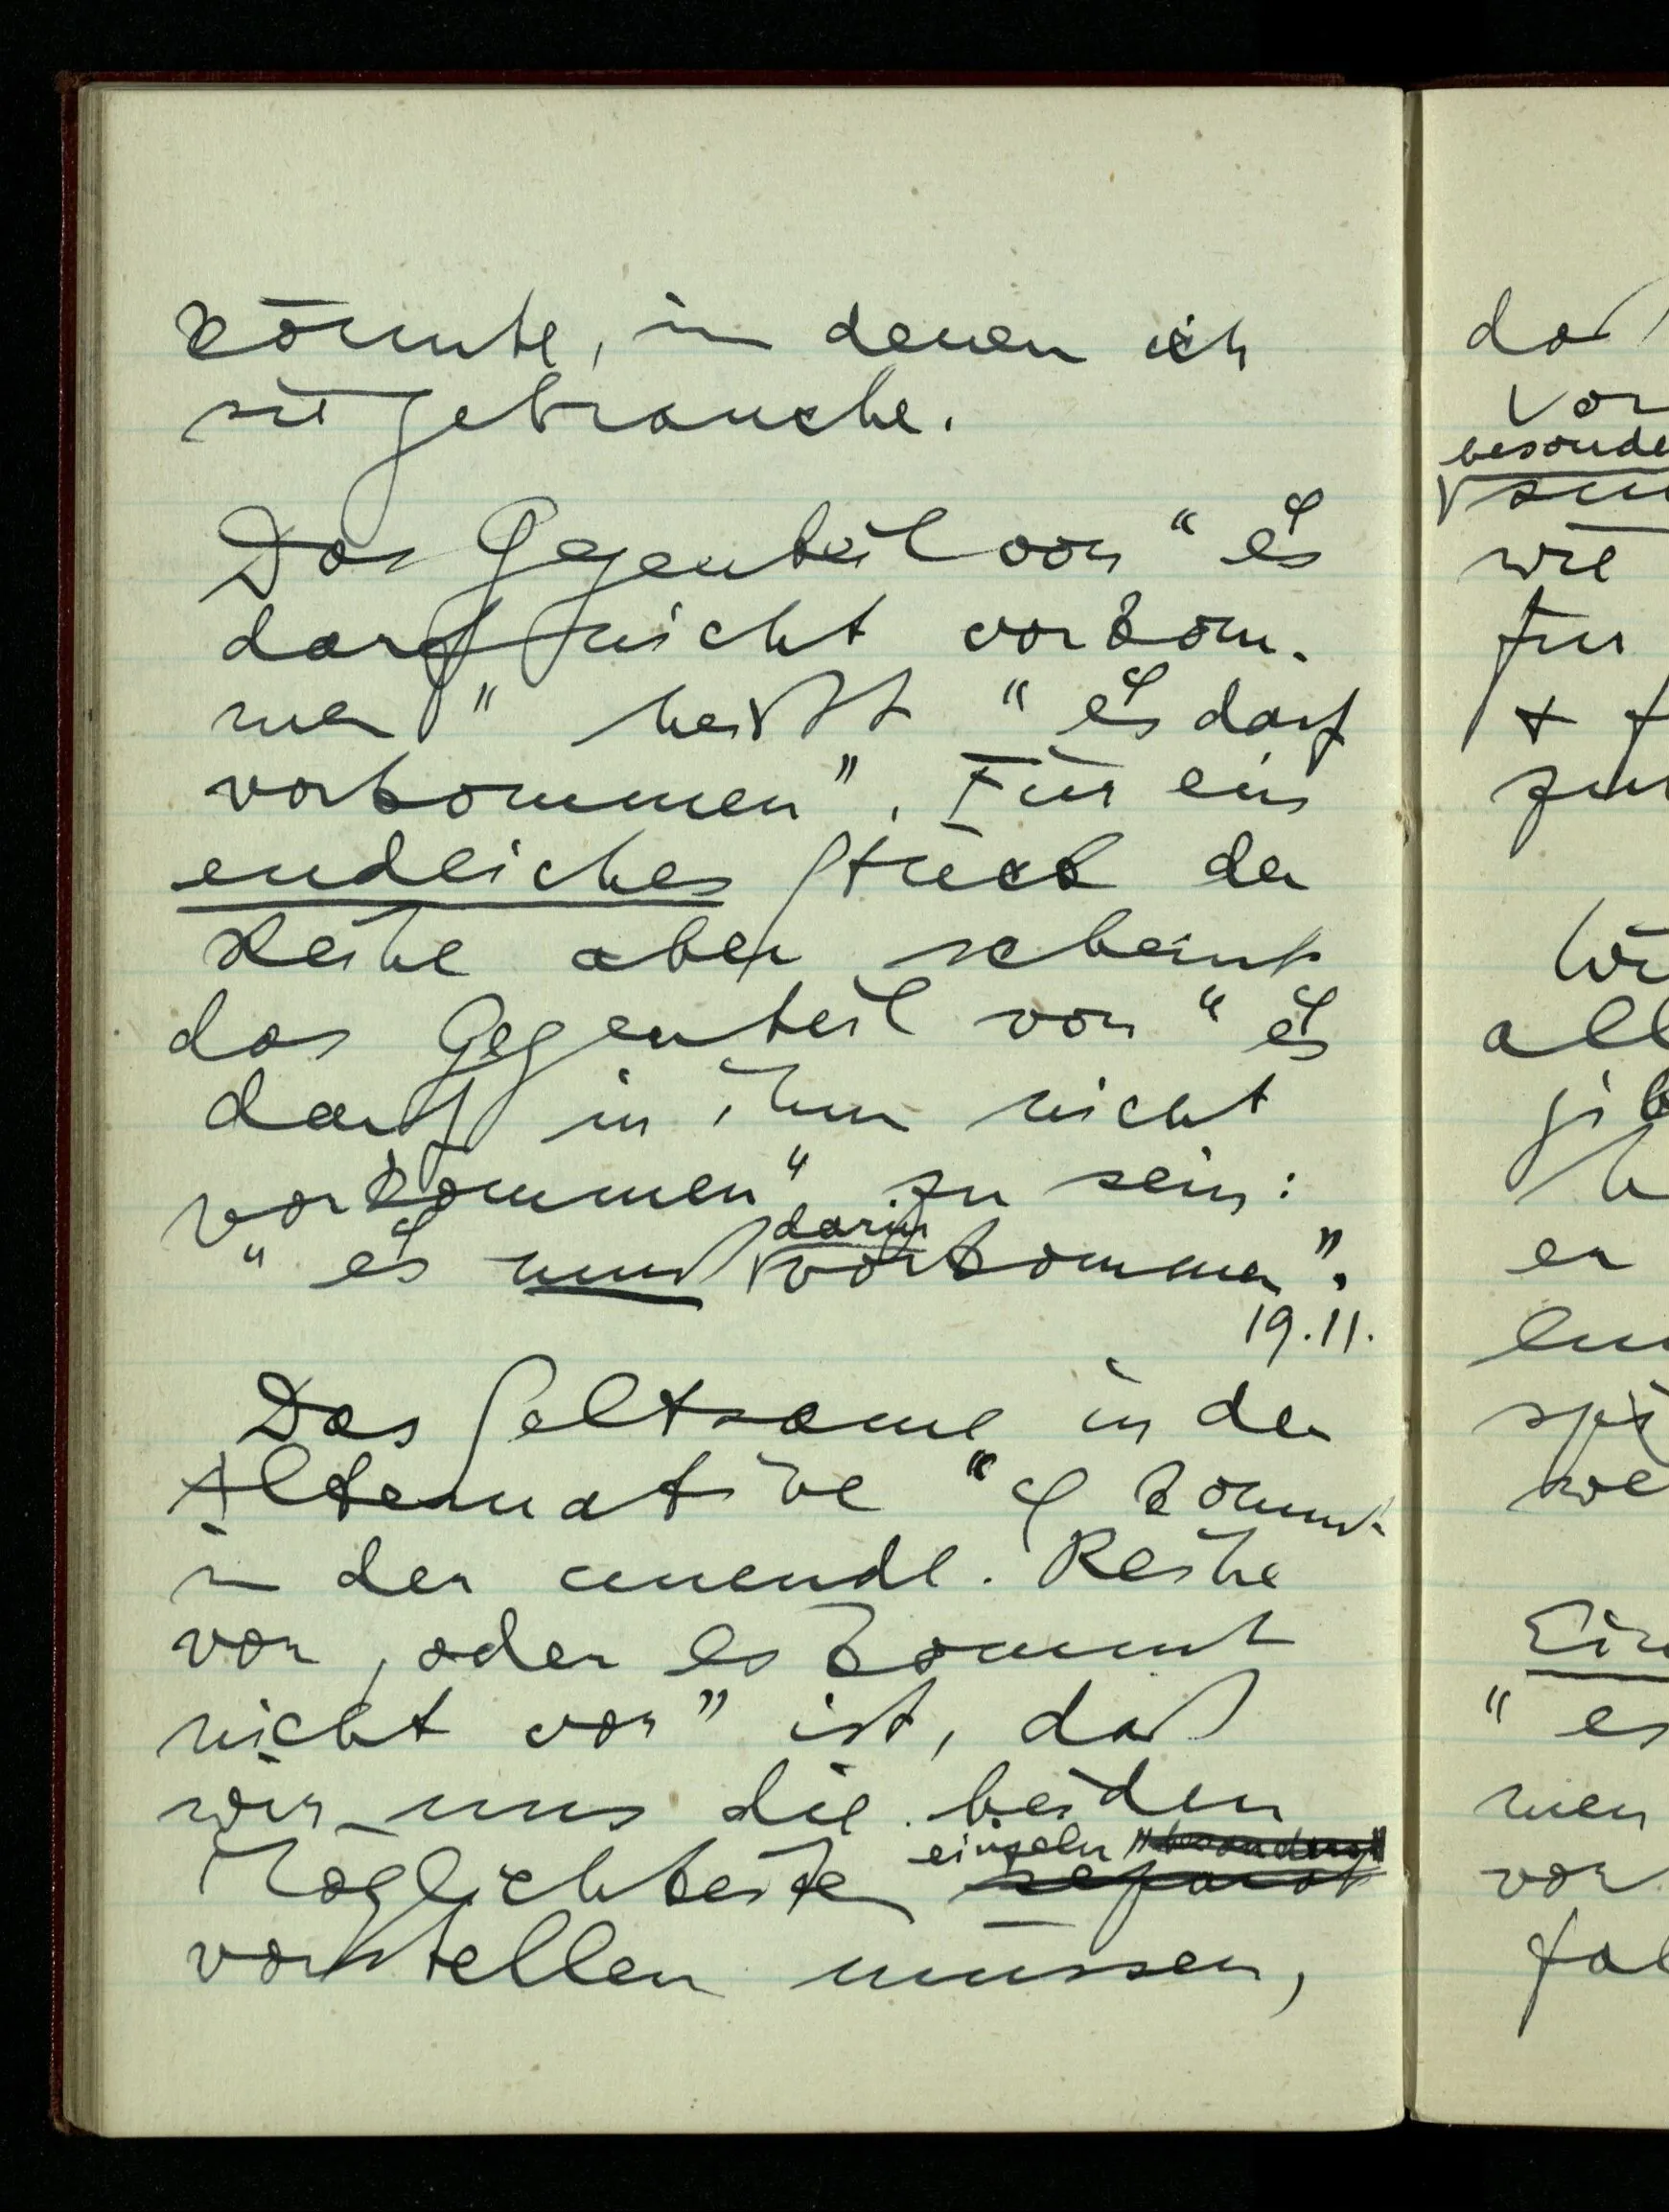 könnte, in denen ich
sie gebrauche.
Das Gegenteil von “es
darf nicht vorkom-
men” heißt “es darf
vorkommen”. Für ein
endliches Stück der
Reihe aber scheint
das Gegenteil von “es
darf in ihm nicht
vorkommen” zu sein:
“es muß darin vorkommen”.
19.11.
Das Seltsame in der
Alternative “φ kommt
in der unendl. Reihe
vor, oder es kommt
nicht vor” ist, daß
wir uns die beiden
einzeln "besonders"
Möglichkeiten separat
vorstellen müssen,
daß
vor
besonde
wie
für
+ f
zur
Wi
all
gib
er
spi
we
Ein
“es
men
vor
fal